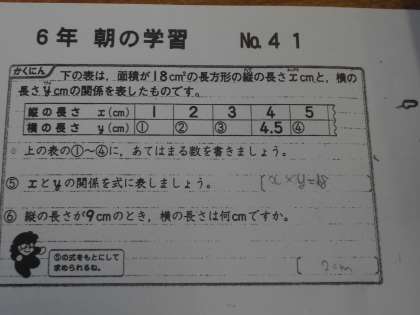 6年 朝の学習 No.41
かくにん 下の表は、面積が18cm²の長方形の縦の長さxcmと、横の
長さycmの関係を表したものです。
縦の長さ x(cm) 1 2 3 4 5
横の長さ y(cm) ① ② ③ 4.5 ④
上の表の①~④に、あてはまる数を書きましょう。
⑤ xとyの関係を式に表しましょう。 [x×y=18]
⑥ 縦の長さが9cmのとき、横の長さは何cmですか。
⑤の式をもとにして
求められるね。
[2cm]